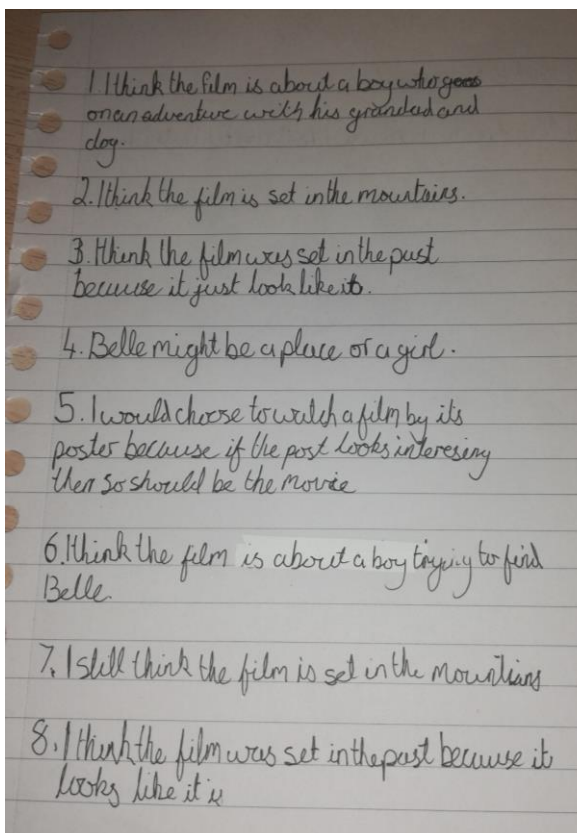 1. I think the film is about a boy who goes
on an adventure with his grandad and
dog.
2. I think the film is set in the mountains.
3. I think the film was set in the past
because it just look like it.
4. Belle might be a place or a girl.
5. I would choose to watch a film by its
poster because if the post looks interesing
then so should be the movie
6. I think the film is about a boy trying to find
Belle.
7. I still think the film is set in the mountians
8. I think the film was set in the past because it
looks like it is